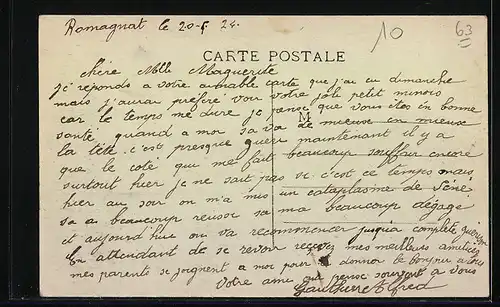 Romagnat le 20-5 24.
10
63
CARTE POSTALE
chère Mlle Maguerite
Je réponds a votre aimable carte que j'ai eu dimanche
mais j'aurai préféré voir votre joli petit minois
car le temps me dure je pense que vous êtes en bonne
M
santé, quand a moi sa va de mieuse en mieuse
la tête c'est presque gueri maintenant il y a
que le coté qui me fait beaucoup souffrir encore
surtout hier je ne sait pas si c'est ce temps mais
hier au soir on m'a mis un cataplasme de
sa a beaucoup reusse sa ma beaucoup dégagé
et aujourd'hui on va recommencer jusqu'a complète guerison
En attendant de se revoir recevez mes meilleurs amitiés
mes parents se joignent a moi pour donner le bonjour a tous
Votre ami qui pense souvent a vous